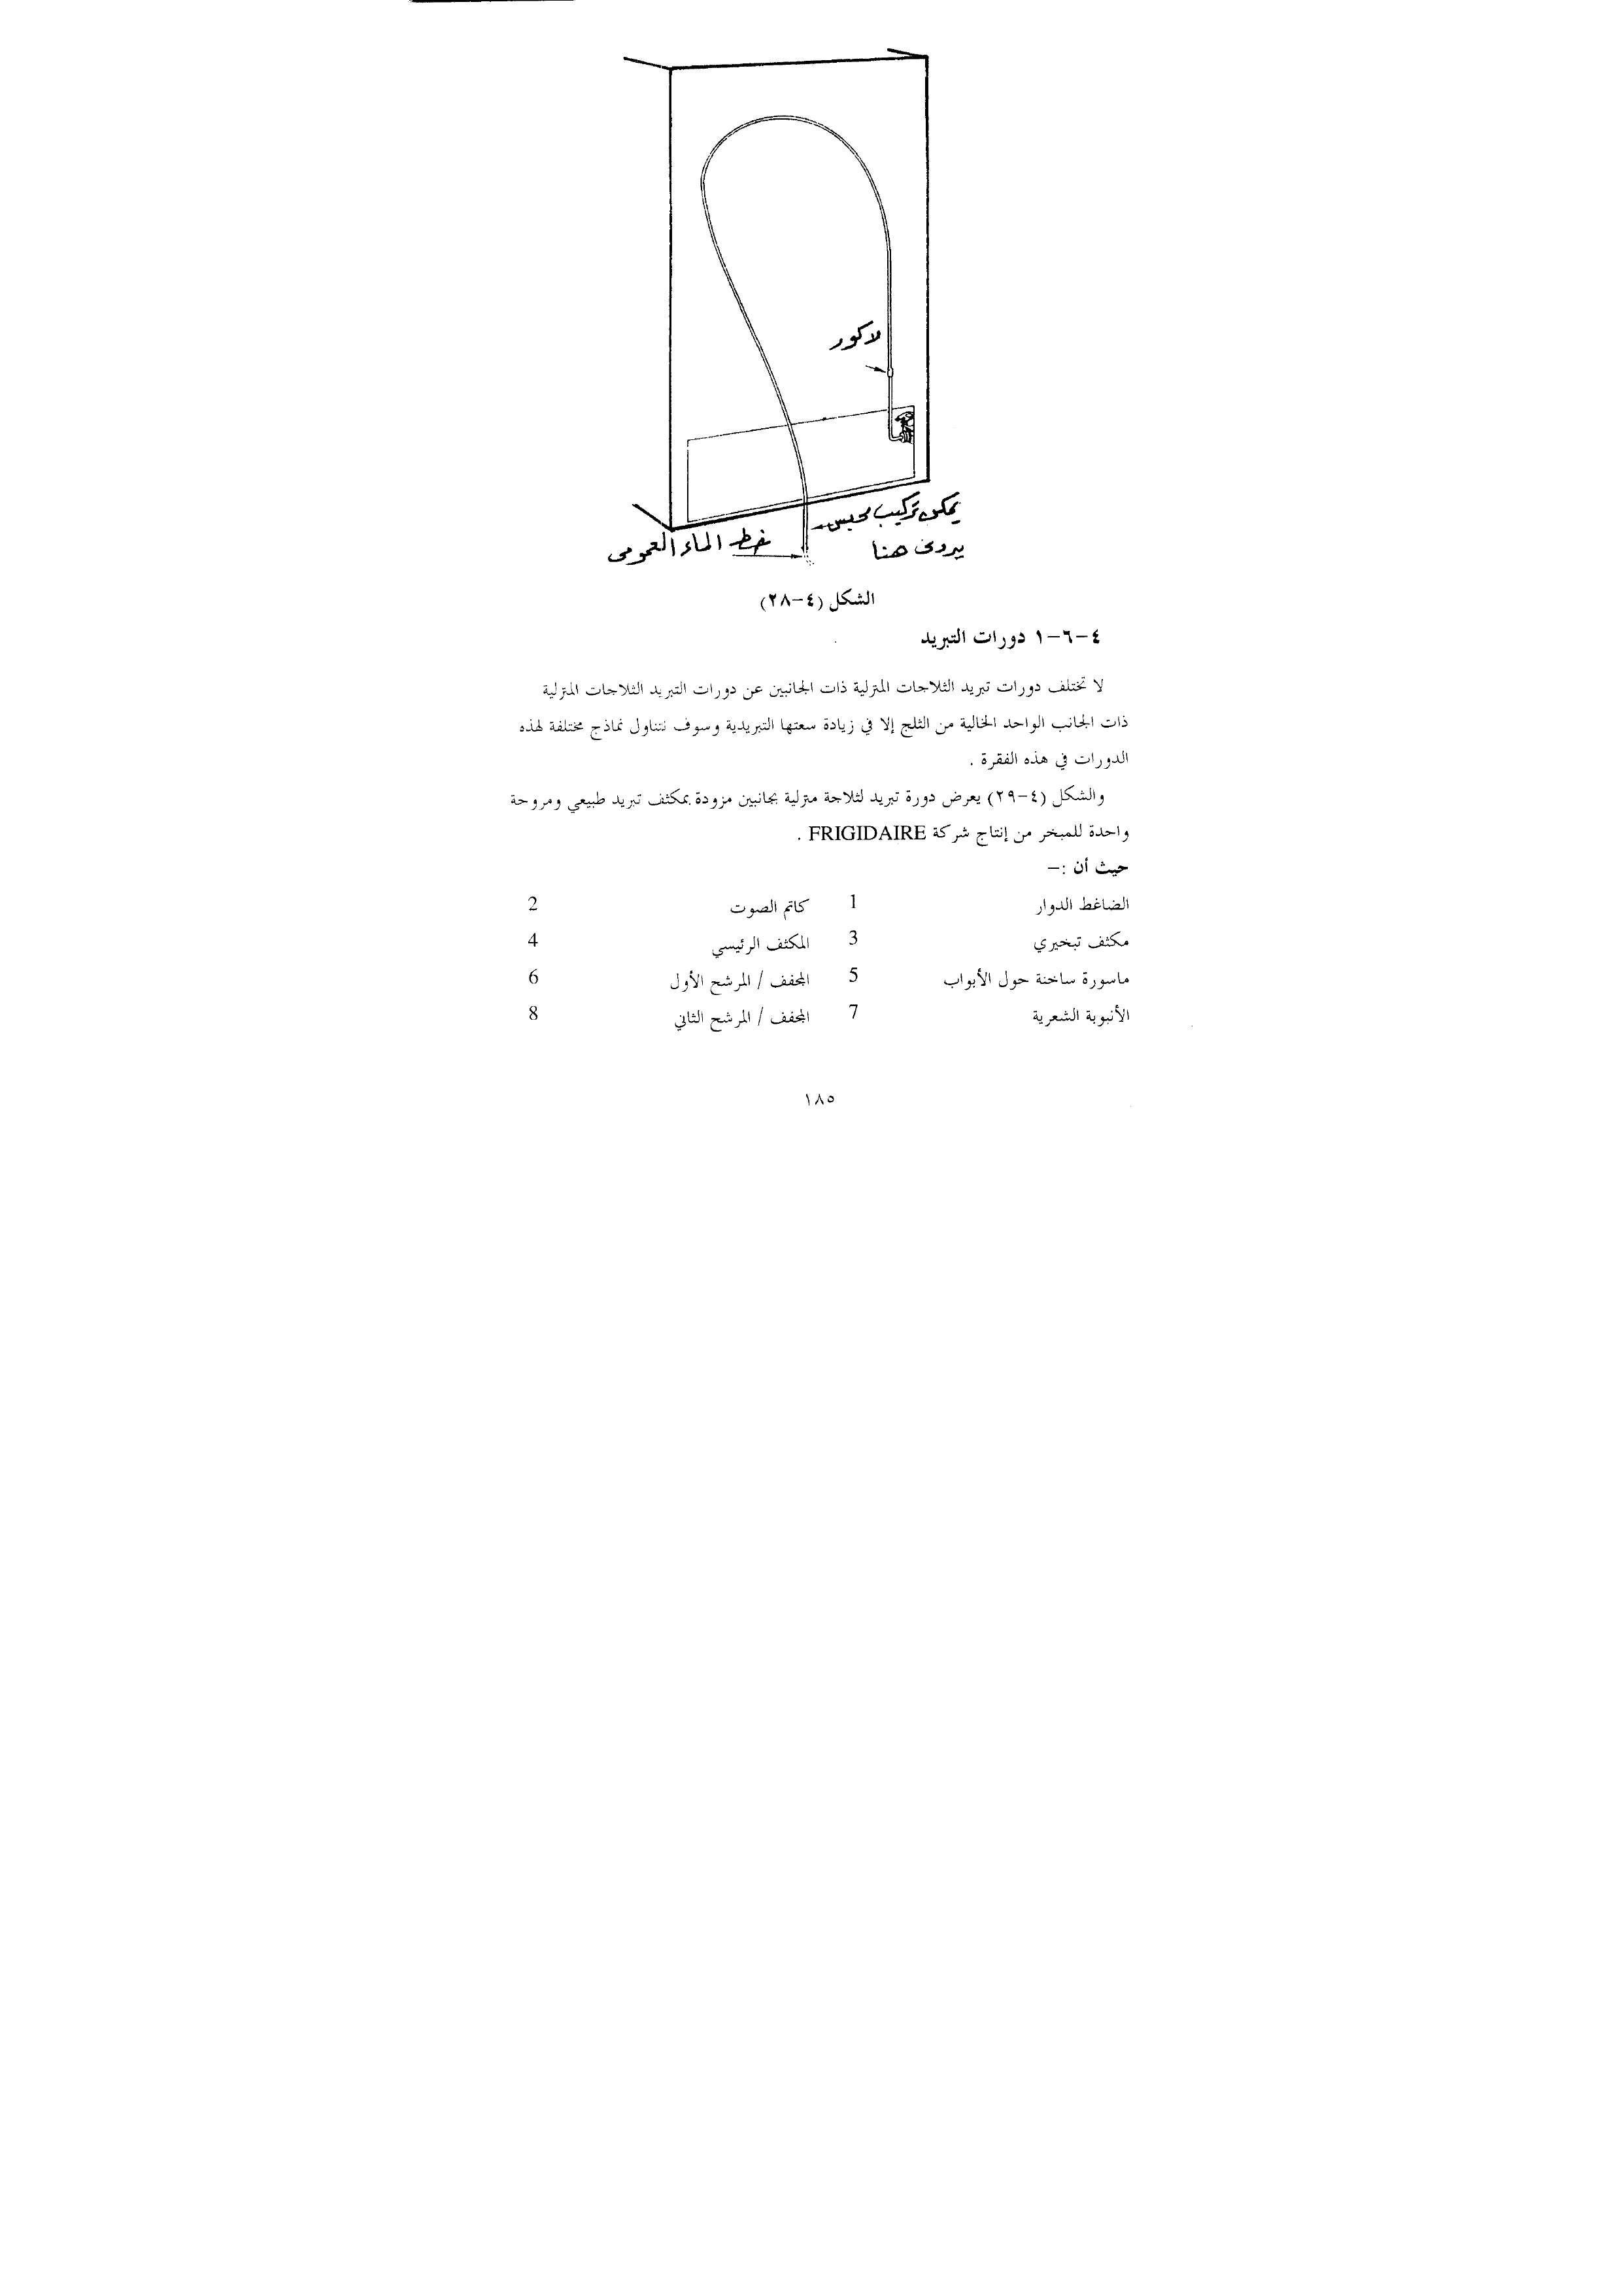 لاكور
يمكن تركيب محبس
يدوى هنا
خط الماء العمومى
الشكل (٤-٢٨)
٤-٦-١ دورات التبريد
لا تختلف دورات تبريد الثلاجات المنزلية ذات الجانبين عن دورات التبريد الثلاجات المنزلية
ذات الجانب الواحد الخالية من الثلج إلا في زيادة سعتها التبريدية وسوف نتناول نماذج مختلفة لهذه
الدورات في هذه الفقرة .
والشكل (٤-٢٩) يعرض دورة تبريد لثلاجة منزلية بجانبين مزودة بمكثف تبريد طبيعي ومروحة
واحدة للمبخر من إنتاج شركة FRIGIDAIRE .
حيث أن :–
الضاغط الدوار 1 كاتم الصوت 2
مكثف تبخيري 3 المكثف الرئيسي 4
ماسورة ساخنة حول الأبواب 5 المجفف / المرشح الأول 6
الأنبوبة الشعرية 7 المجفف / المرشح الثاني 8
١٨٥